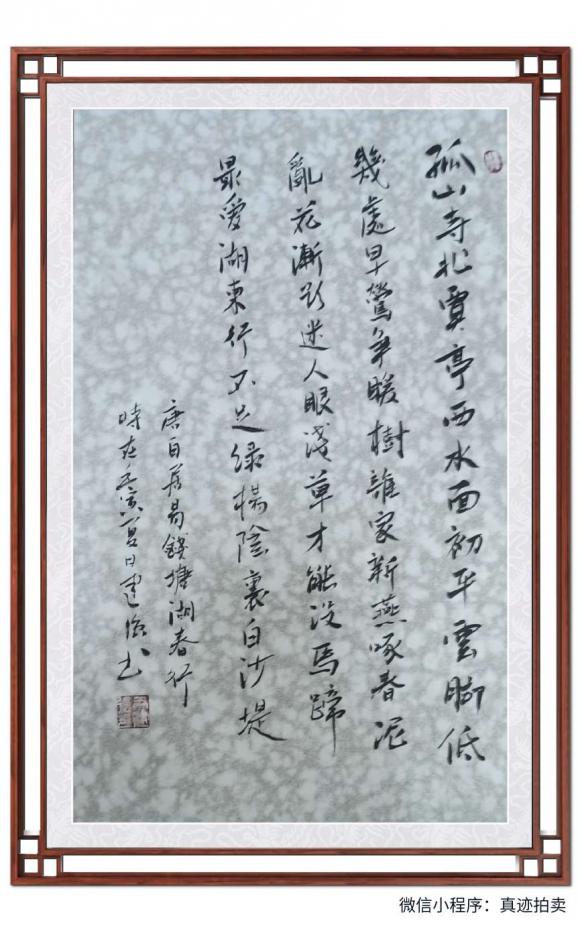 孤山寺北賈亭西水面初平雲脚低
幾處早鶯争暖樹誰家新燕啄春泥
亂花漸欲迷人眼淺草才能没馬蹄
最愛湖東行不足綠楊陰裏白沙堤
唐白居易錢塘湖春行
時在壬寅夏日建书
微信小程序：真迹拍卖